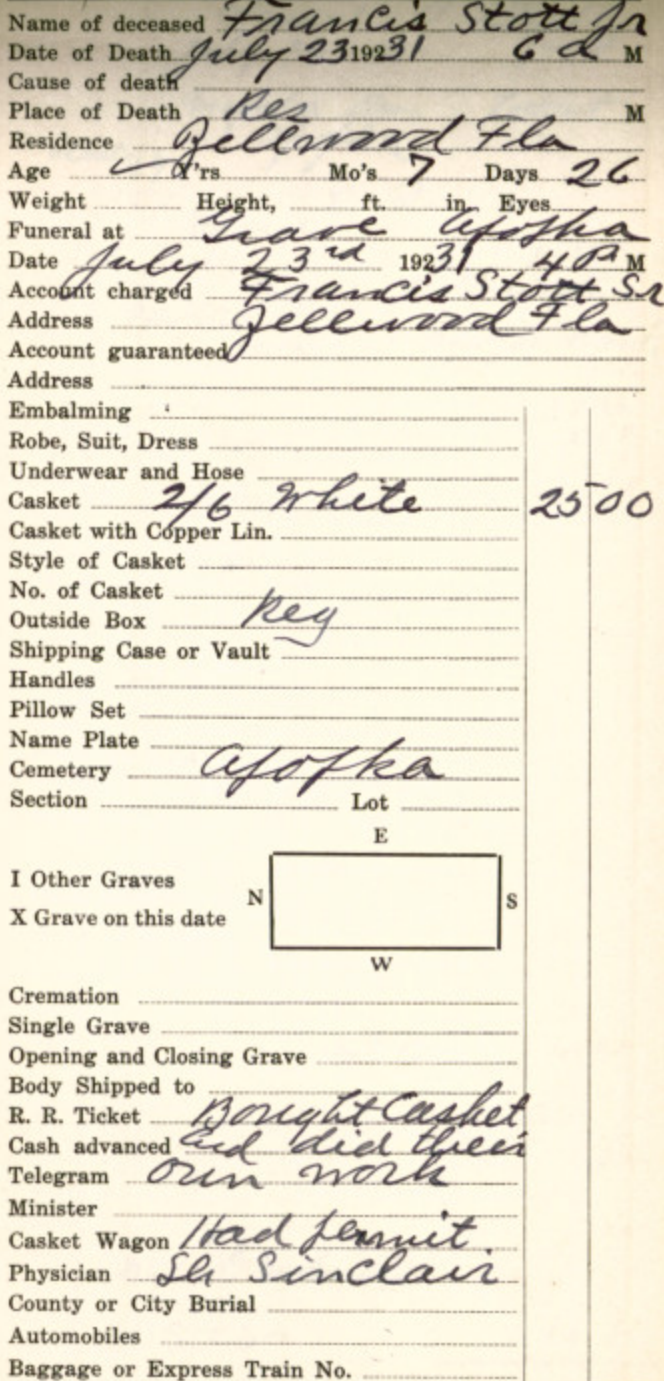 Name of deceased Francis Stott Jr
Date of Death July 23 19231 6 a M
Cause of death
Place of Death Res M
Residence Zellwood Fla
Age Y'rs Mo's 7 Days 26
Weight Height, ft. in. Eyes
Funeral at Grave Apopka
Date July 23rd 19231 4 P M
Account charged Francis Stott Sr
Address Zellwood Fla
Account guaranteed
Address
Embalming
Robe, Suit, Dress
Underwear and Hose
Casket 2/6 White 25 00
Casket with Copper Lin.
Style of Casket
No. of Casket
Outside Box Reg
Shipping Case or Vault
Handles
Pillow Set
Name Plate
Cemetery Apopka
Section Lot
E
I Other Graves
N S
X Grave on this date
W
Cremation
Single Grave
Opening and Closing Grave
Body Shipped to
R. R. Ticket Bought Casket
Cash advanced and did their
Telegram own work
Minister
Casket Wagon Had permit
Physician Sinclair
County or City Burial
Automobiles
Baggage or Express Train No.